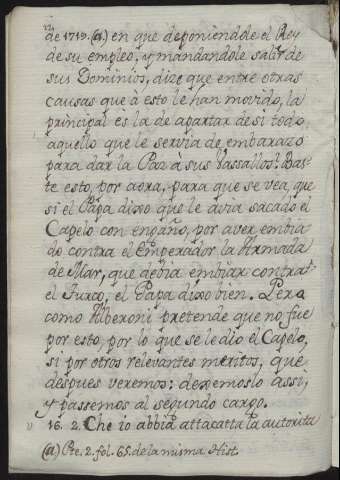 de 1719. (a) en que deponiendole el Rey
de su empleo, y mandandole salir de
sus Dominios, dize que entre otras
causas que à esto le han movido, la
principal es la de apartar de si todo
aquello que le servia de embarazo
para dar la Paz à sus vassallos. Bas-
te esto, por aora, para que se vea, que
si el Papa dixo que le avia sacado el
Capelo con engaño, por aver embia
do contra el Emperador la Armada
de Mar, que debia embiar contra
el Turco, el Papa dixo bien. Pero
como Alberoni pretende que no fue
por esto, por lo que se le dio el Capelo,
si por otros relevantes meritos, que
despues veremos: dexemoslo assi,
y passemos al segundo cargo.
16. 2. Che io abbia attacatta la autorita
(a) Pte. 2. fol. 65. de la misma Hist.